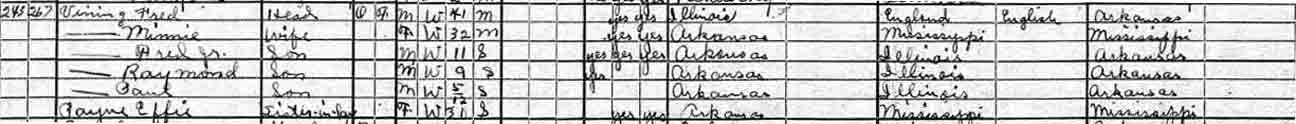 243 267 Vining Fred Head O F M W 41 M yes yes Illinois England English Arkansas
— Minnie Wife F W 32 M yes yes Arkansas Mississippi Mississippi
— Fred Jr. Son M W 11 S yes yes yes Arkansas Illinois Arkansas
— Raymond Son M W 9 S yes Arkansas Illinois Arkansas
— Paul Son M W 5/12 S Arkansas Illinois Arkansas
Payne Effie Sister-in-law F W 31 S yes yes Arkansas Mississippi Mississippi